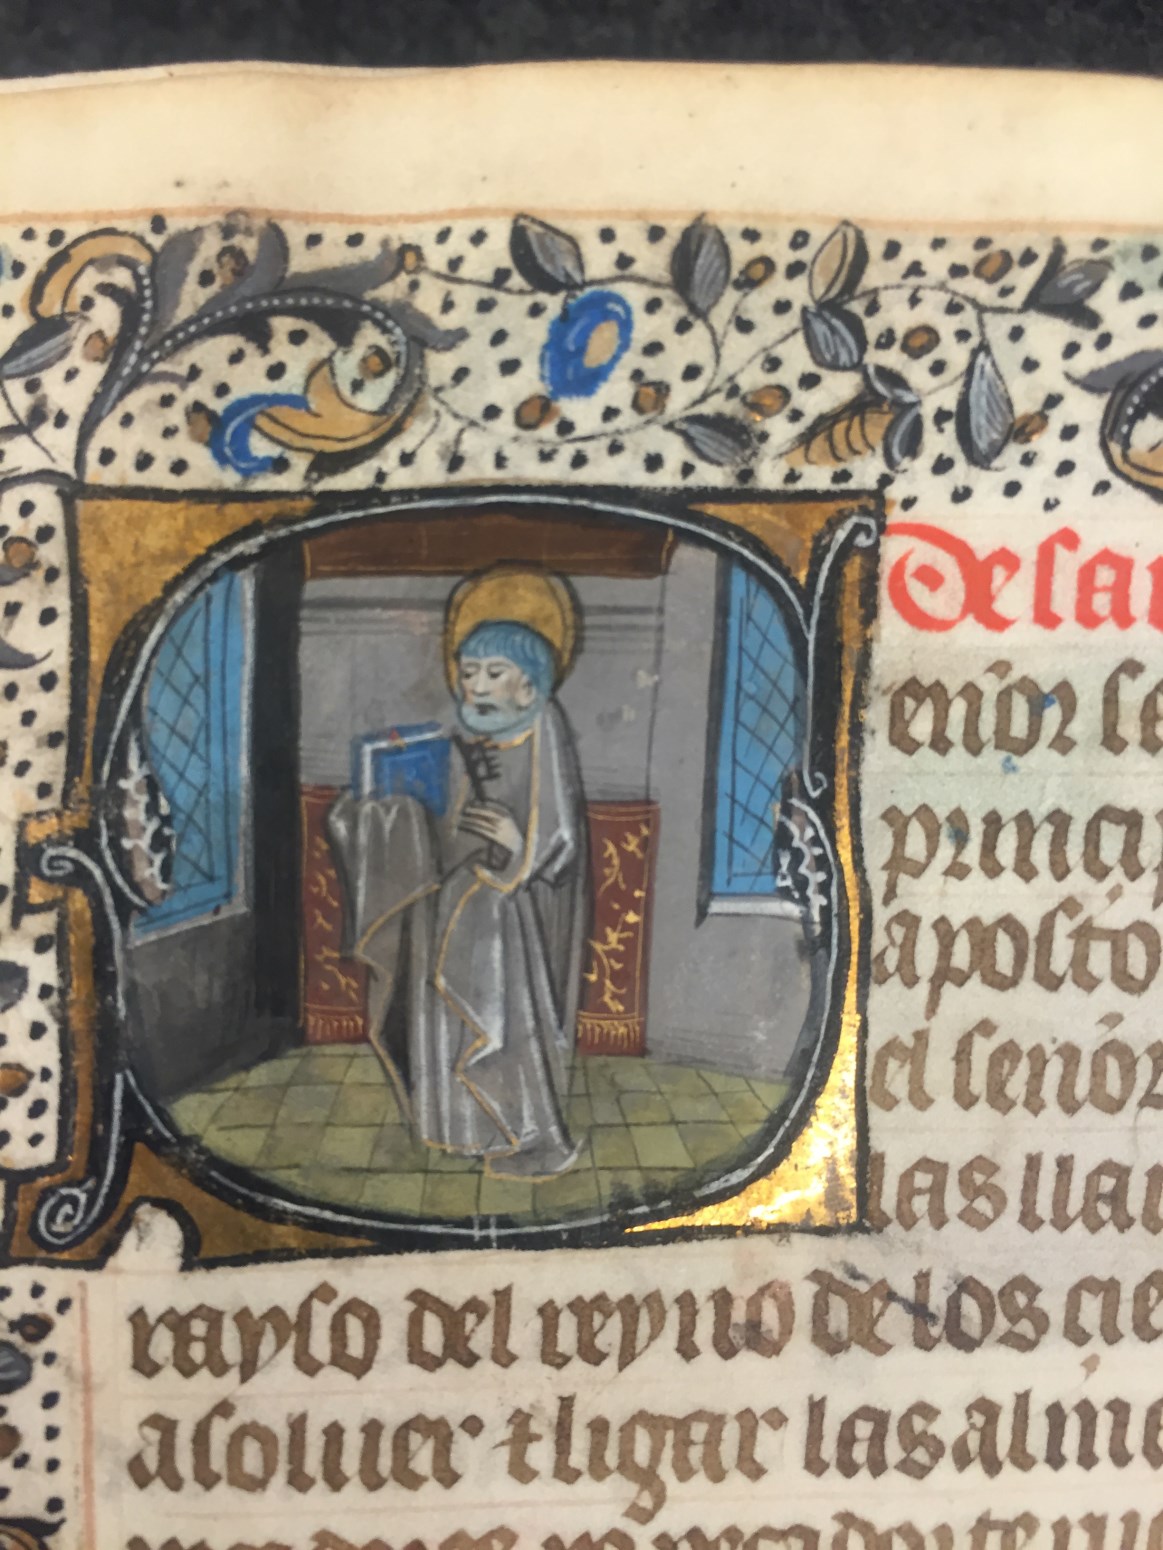 De sa
enor se
princip
aposto
el señor
las lla
rayso del reyno de los cie
asoluer τ ligar las alm